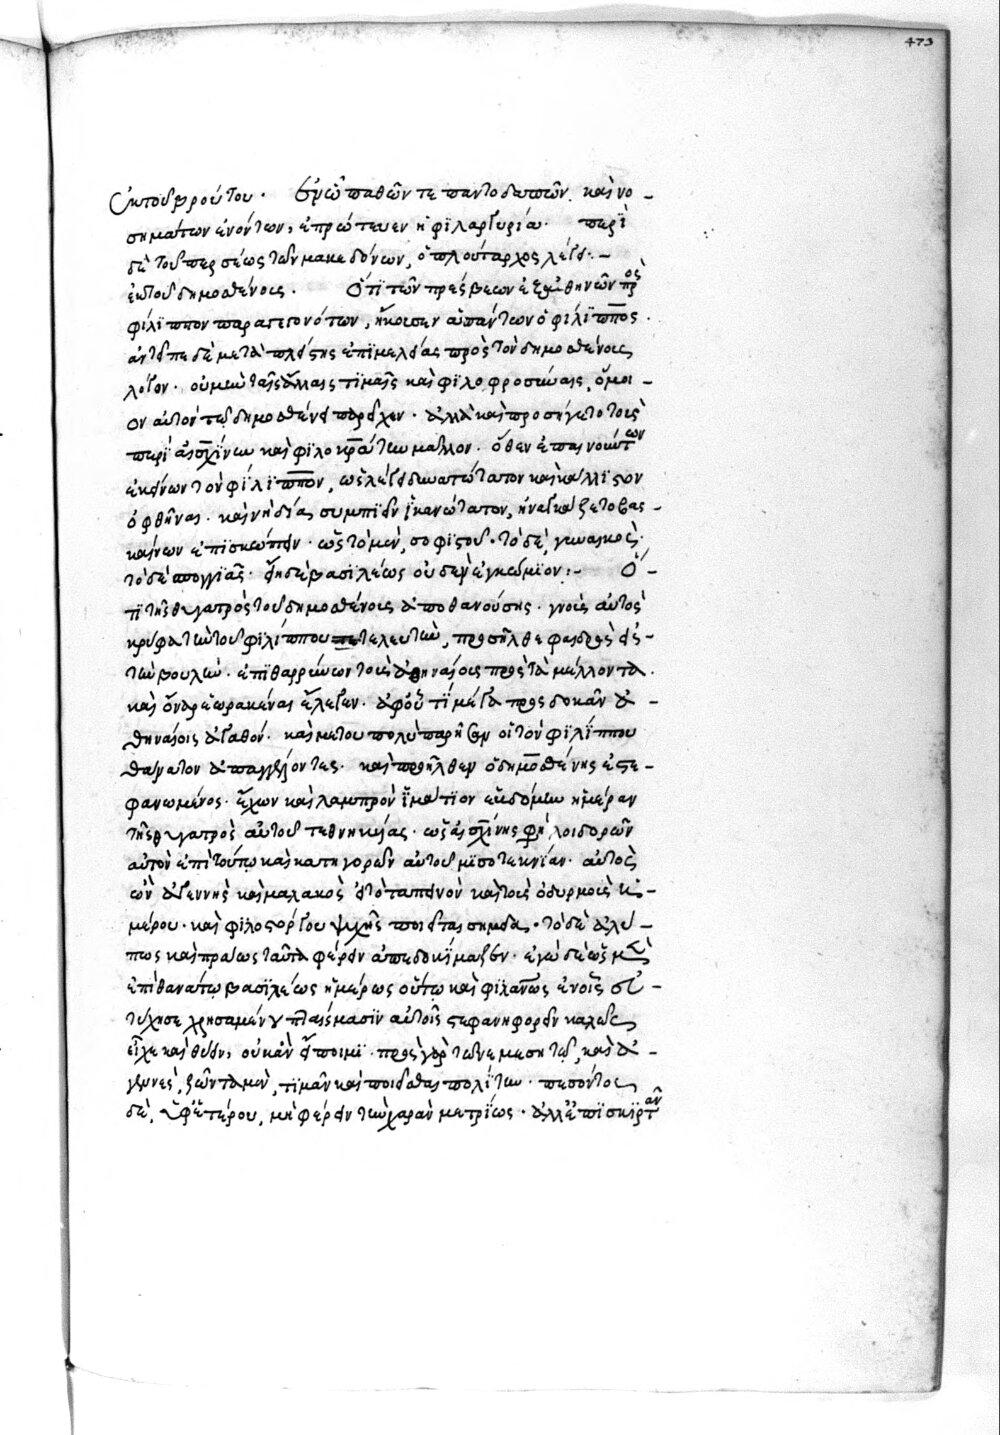 473
ἐκ τοῦ βρούτου. ἐν ὧ παθῶν τε παντοδαπῶν καὶ νο-
σημάτων ἐνόντων, ἐπρώτευεν ἡ φιλαργυρία. περὶ
δὲ τοῦ περσέως τῶν μακεδόνων, ὁ πλούταρχος λέγει.-
ἐκ τοῦ δημοσθένους. Ὅτι τῶν πρέσβεων ἐξ ἀθηνῶν πρὸς
φίλιππον παραγεγονότων, ἤκουσεν ἁπάντων ὁ φίλιππος.
ἀντεῖπε δὲ μετὰ πλείστης ἐπιμελείας πρὸς τὸν δημοσθένους
λόγον. οὐ μὴν ταῖς ἄλλαις τιμαῖς καὶ φιλοφροσύναις, ὅμοι-
ον αὑτὸν τῶ δημοσθένει παρεῖχεν. ἀλλὰ καὶ προσήγετο τοὺς
περὶ αἰσχίνην καὶ φιλοκράτην μᾶλλον. ὅθεν ἐπαινούντων
ἐκείνων τὸν φίλιππον, ὡς λέγειν δυνατώτατον καὶ κάλλιστον
ὀφθῆναι. καὶ νὴ δία, συμπιεῖν ἱκανώτατον, ἠναγκάζετο βας-
καίνων ἐπισκώπτειν. ὡς τὸ μὲν, σοφιστοῦ. τὸ δὲ, γυναικὸς.
τὸ δὲ σπογγιᾶς. εἴη δὲ βασιλέως οὐδεὶν ἐγκώμιον:- Ὅ-
τι τῆς θυγατρὸς τοῦ δημοσθένους ἀποθανούσης. γνοὺς αὐτὸς
κρύφα τὴν τοῦ φιλίππου τελευτὴν, προσῆλθε φαιδρὸς εἰς
τὴν βουλὴν. ἐπιθαρρύνων τοὺς ἀθηναίους πρὸς τὰ μέλλοντα.
καὶ ὄναρ ἑωρακέναι ἔλεγεν. ἀφ' οὗ τι μέγα προσδοκᾶν ἀ-
θηναίοις ἀγαθόν. καὶ μετ' οὐ πολὺ παρῆσαν οἱ τὸν φιλίππου
θάνατον ἀπαγγέλλοντες. καὶ προῆλθεν ὁ δημοσθένης ἐστε-
φανωμένος. ἔχων καὶ λαμπρὸν ἱμάτιον ἑβδόμην ἡμέραν
τῆς θυγατρὸς αὐτοῦ τεθνηκυίας. ὡς αἰσχίνης φησὶ λοιδορῶν
αὐτὸν ἐπὶ τούτω καὶ κατηγορῶν αὐτοῦ μισοτεκνίαν. αὐτὸς
ὢν ἀγεννὴς καὶ μαλακὸς εἰ τὸ ταπεινὸν καὶ τοὺς ὀδυρμοὺς ἡ-
μέρου. καὶ φιλοστόργου ψυχῆς ποιεῖται σημεῖα. τὸ δὲ ἀλύ-
πως καὶ πράως ταῦτα φέρειν ἀπεδοκίμαζεν. ἐγὼ δὲ ὡς μὲν
ἐπὶ θανάτω βασιλέως ἡμέρως οὕτω καὶ φιλανθρώπως ἐν οἷς εὐ-
τύχησε χρησαμένου πταίσμασιν αὐτοῖς στεφανηφορεῖν καλῶς
εἶχε καὶ θύειν, οὐκ ἂν εἴποιμι. πρὸς γὰρ τῶ νεμεσητῶ, καὶ ἀ-
γεννὲς, ζῶντα μὲν, τιμᾶν καὶ ποιεῖσθαι πολίτην. πεσόντος
δὲ, ὑφ' ἑτέρου, μὴ φέρειν τὴν χαρὰν μετρίως. ἀλλ' ἐπισκιρτᾶν